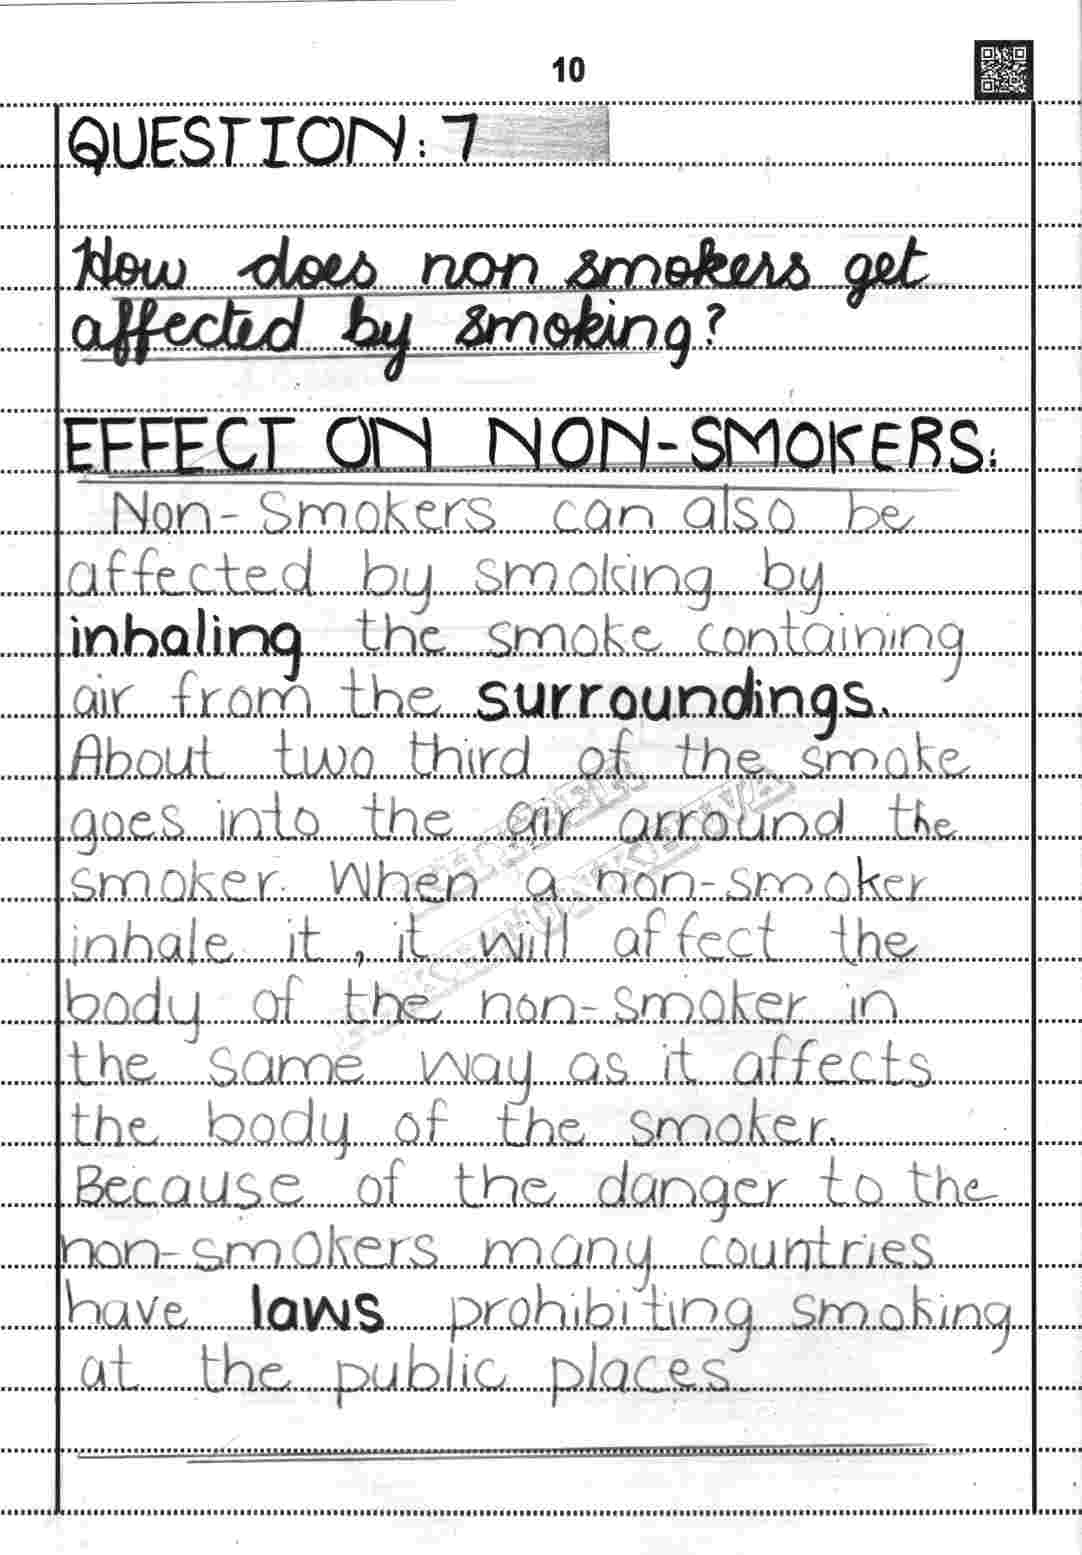 10
QUESTION: 7
How does non smokers get
affected by smoking?
EFFECT ON NON-SMOKERS:
Non-Smokers can also be
affected by smoking by
inhaling the smoke containing
air from the surroundings.
About two third of the smoke
goes into the air arround the
smoker. When a non-smoker
inhale it, it will affect the
body of the non-smoker in
the same way as it affects
the body of the smoker.
Because of the danger to the
non-smokers many countries
have laws prohibiting smoking
at the public places